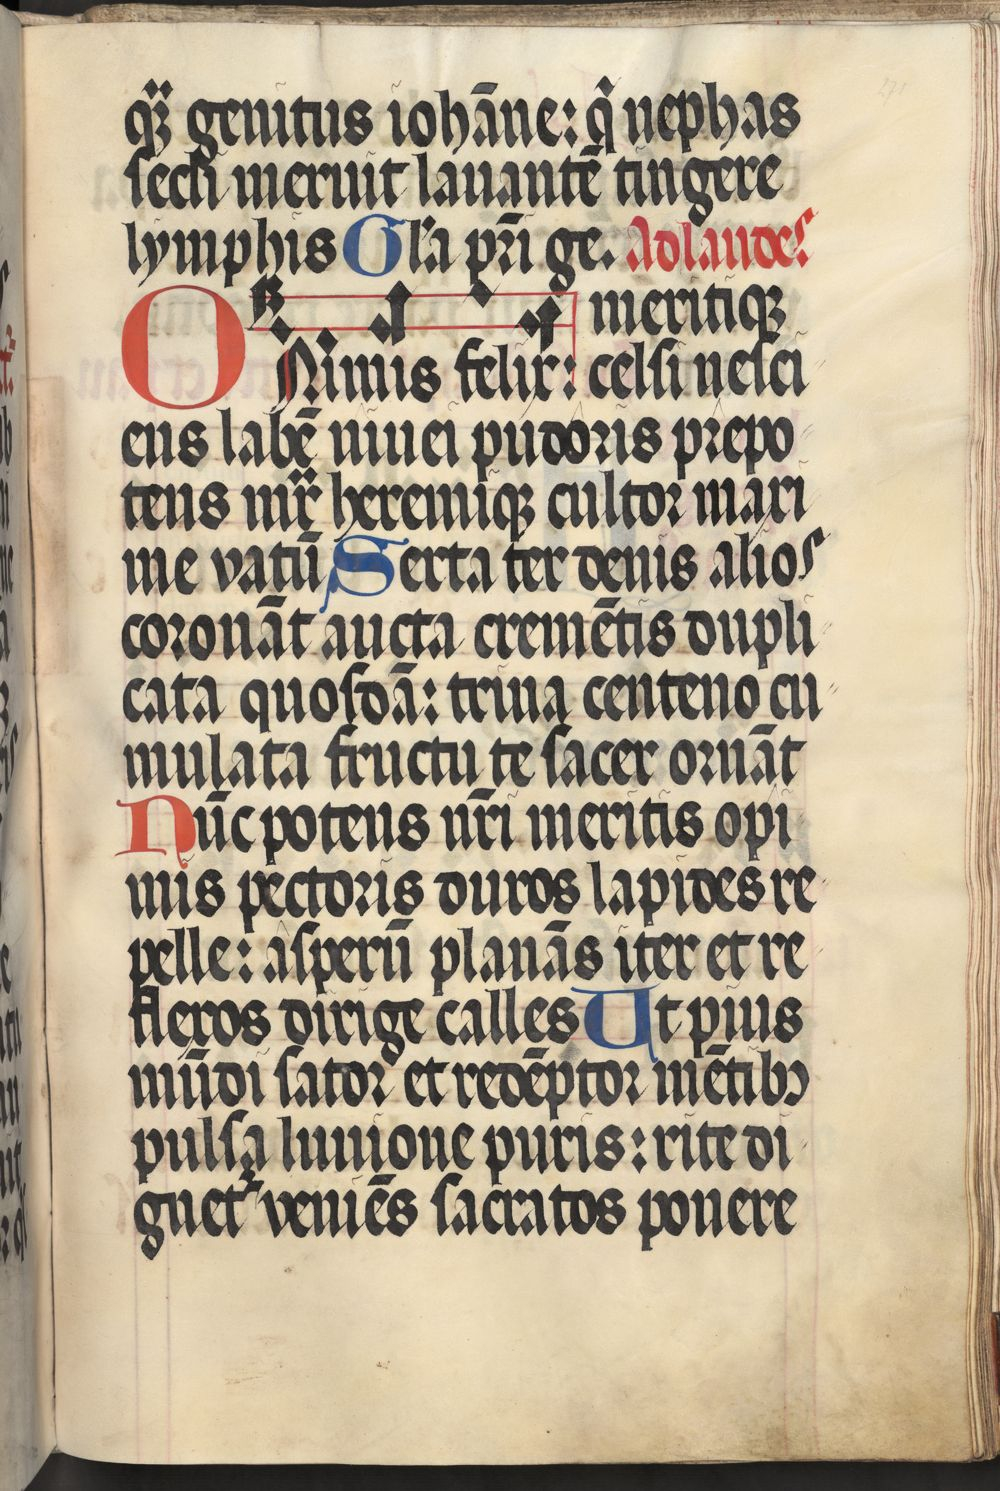 qꝫ̈ genitus iohāne: q̄ nephas
secli meruit lauantē tingere
lymphis Gl'a pr̄i ge. Ad laudes
O meritiqꝫ
Nimis felix: celsi nesci
ens labē niuei pudoris prepo
tens mr̄ heremiqꝫ cultor maxi
me vatū Serta ter denis alios
coronāt aucta cremētis dupli
cata quosdā: trina centeno cu
mulata fructu te sacer ornāt
Nūc potens nr̄i meritis opi
mis pectoris duros lapides re
pelle: asperū planās iter et re
flexos dirige calles Ut pius
mūdi sator et redēptor mētibꝫ
pulsa liuione puris: rite di
gnet' veniēs sacratos ponere
271